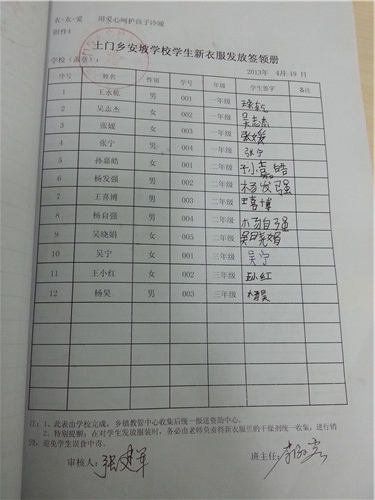 衣·衣·爱 用爱心呵护孩子冷暖
附件4
土门乡安坡学校学生新衣服发放签领册
学校（盖章）： 2013年 4月19日
序号 姓名 性别 学号 年级 学生签字 备注
1 王永乾 男 001 一年级
2 吴志杰 女 002 一年级 吴志杰
3 张媛 女 003 一年级 张媛
4 张宁 男 004 一年级 张宁
5 孙嘉皓 女 001 二年级 孙嘉皓
6 杨发强 男 002 二年级 杨发强
7 王喜博 男 003 二年级 王喜博
8 杨自强 男 004 二年级 杨自强
9 吴晓娟 女 005 二年级 吴晓娟
10 吴宁 女 001 三年级 吴宁
11 王小红 女 002 三年级
12 杨昊 男 003 三年级 杨昊
注：1、此表由学校完成，乡镇教管中心收集后统一报送资助中心。
2、特别提醒：在对学生发放服装时，务必由老师负责将新衣服里的干燥剂统一收集，进行销
毁，避免学生误食中毒。
审核人： 班主任：